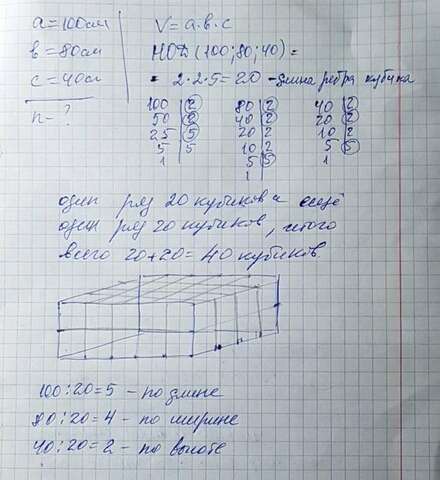 a = 100 см
в = 80 см
с = 40 см
n - ?
V = a·в·с
НОД (100; 80; 40) =
= 2·2·5 = 20 - длина ребра кубика
100 | 2
50 | 2
25 | 5
5 | 5
1
80 | 2
40 | 2
20 | 2
10 | 2
5 | 5
1
40 | 2
20 | 2
10 | 2
5 | 5
1
один ряд 20 кубиков и ещё
один ряд 20 кубиков, итого
всего 20+20 = 40 кубиков.
100:20=5 - по длине
80:20=4 - по ширине
40:20=2 - по высоте